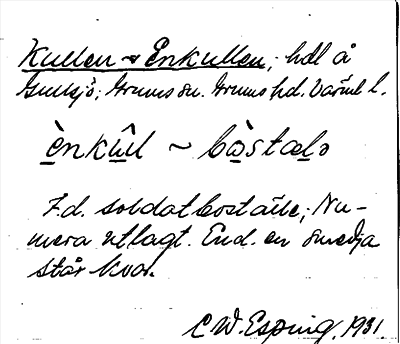 Kullen ~ Enkullen, hdl å
Gullsjö; Grums sn. Grums hd. Värml l.
ènkûl ~ bòstælə
F.d. soldatboställe; Nu-
mera utlagt. End. en smedja
står kvar.
C W. Esping, 1931